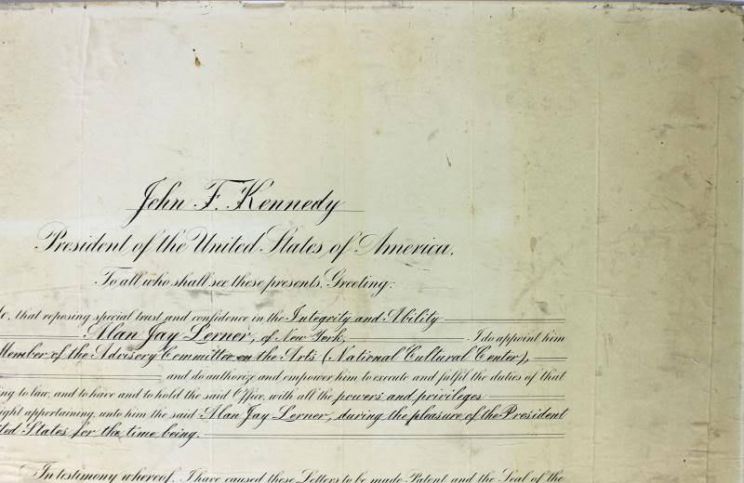 John F. Kennedy
President of the United States of America.
To all who shall see these presents, Greeting:
that reposing special trust and confidence in the Integrity and Ability
Alan Jay Lerner, of New York, I do appoint him
Member of the Advisory Committee on the Arts (National Cultural Center),
and do authorize and empower him to execute and fulfil the duties of that
to law, and to have and to hold the said Office, with all the powers and privileges
appertaining, unto him the said Alan Jay Lerner, during the pleasure of the President
States for the time being.
In testimony whereof, I have caused these Letters to be made Patent and the Seal of the